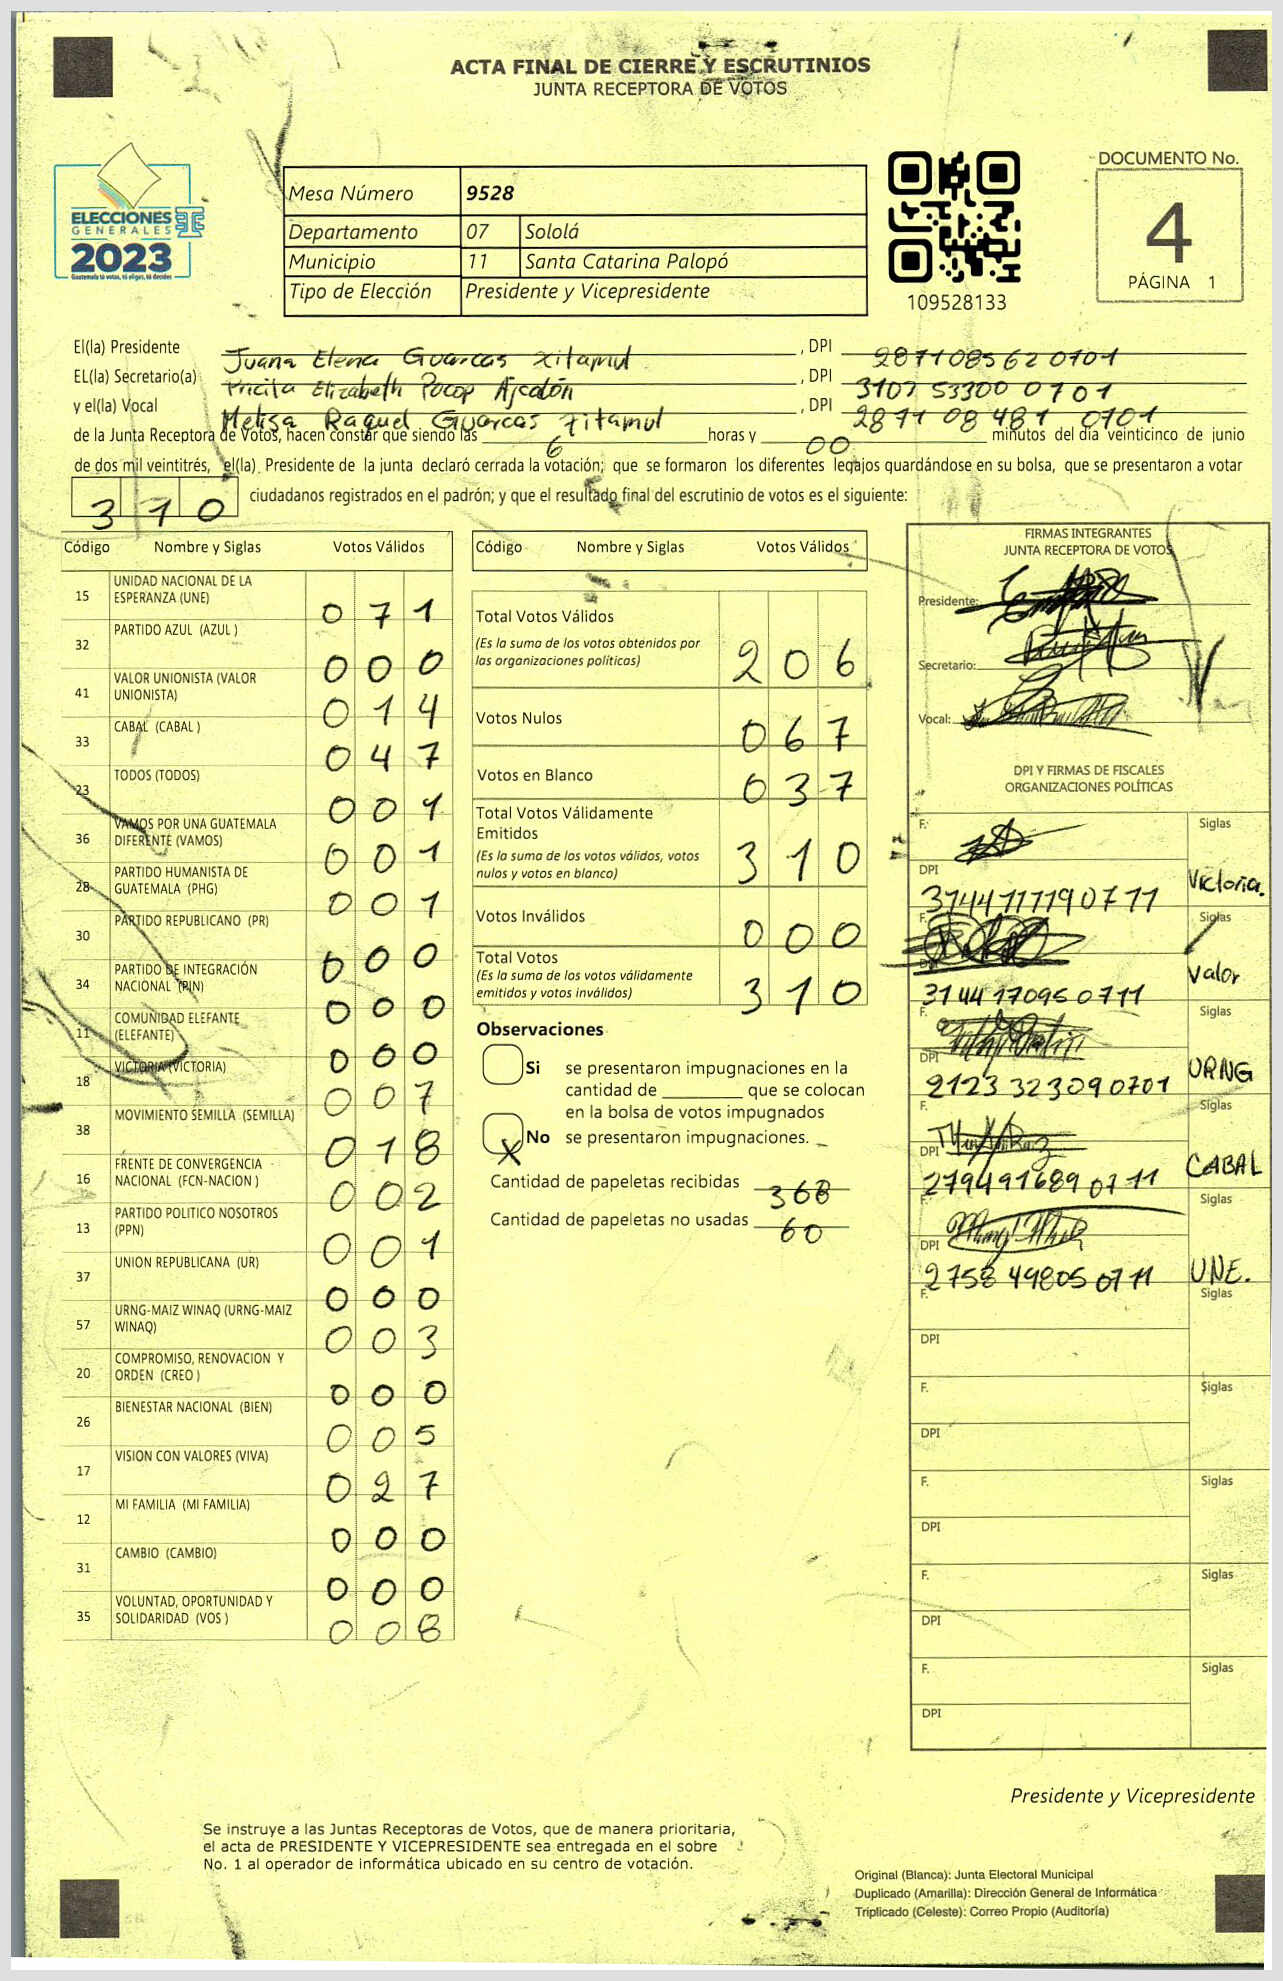 ACTA FINAL DE CIERRE Y ESCRUTINIOS
JUNTA RECEPTORA DE VOTOS
ELECCIONES
GENERALES
2023
Guatemala tú votas, tú eliges, tú decides
Mesa Número 9528
Departamento 07 Sololá
Municipio 11 Santa Catarina Palopó
Tipo de Elección Presidente y Vicepresidente
109528133
DOCUMENTO No.
4
PÁGINA 1
El(la) Presidente Juana Elena Guarcas Xitamul, DPI 2871085620701
EL(la) Secretario(a) Pricila Elizabeth Pocop Ajcalón, DPI 3107 53300 0701
y el(la) Vocal Melisa Raquel Guarcas Xitamul, DPI 2871 08 481 0701
de la Junta Receptora de Votos, hacen constar que siendo las 6 horas y 00 minutos del día veinticinco de junio
de dos mil veintitrés, el(la). Presidente de la junta declaró cerrada la votación; que se formaron los diferentes legajos guardándose en su bolsa, que se presentaron a votar
310 ciudadanos registrados en el padrón; y que el resultado final del escrutinio de votos es el siguiente:
Código Nombre y Siglas Votos Válidos
15 UNIDAD NACIONAL DE LA
ESPERANZA (UNE) 071
32 PARTIDO AZUL (AZUL ) 000
41 VALOR UNIONISTA (VALOR
UNIONISTA) 014
33 CABAL (CABAL ) 047
23 TODOS (TODOS) 001
36 VAMOS POR UNA GUATEMALA
DIFERENTE (VAMOS) 001
28 PARTIDO HUMANISTA DE
GUATEMALA (PHG) 001
30 PARTIDO REPUBLICANO (PR) 000
34 PARTIDO DE INTEGRACIÓN
NACIONAL (PIN) 000
11 COMUNIDAD ELEFANTE
(ELEFANTE) 000
18 VICTORIA (VICTORIA) 007
38 MOVIMIENTO SEMILLA (SEMILLA) 018
16 FRENTE DE CONVERGENCIA
NACIONAL (FCN-NACION ) 002
13 PARTIDO POLITICO NOSOTROS
(PPN) 001
37 UNION REPUBLICANA (UR) 000
57 URNG-MAIZ WINAQ (URNG-MAIZ
WINAQ) 003
20 COMPROMISO, RENOVACION Y
ORDEN (CREO ) 000
26 BIENESTAR NACIONAL (BIEN) 005
17 VISION CON VALORES (VIVA) 027
12 MI FAMILIA (MI FAMILIA) 000
31 CAMBIO (CAMBIO) 000
35 VOLUNTAD, OPORTUNIDAD Y
SOLIDARIDAD (VOS ) 008
Código Nombre y Siglas Votos Válidos
Total Votos Válidos
(Es la suma de los votos obtenidos por
las organizaciones políticas) 206
Votos Nulos 067
Votos en Blanco 037
Total Votos Válidamente
Emitidos
(Es la suma de los votos válidos, votos
nulos y votos en blanco) 310
Votos Inválidos 000
Total Votos
(Es la suma de los votos válidamente
emitidos y votos inválidos) 310
Observaciones
Si se presentaron impugnaciones en la
cantidad de que se colocan
en la bolsa de votos impugnados
X No se presentaron impugnaciones.
Cantidad de papeletas recibidas 368
Cantidad de papeletas no usadas 60
FIRMAS INTEGRANTES
JUNTA RECEPTORA DE VOTOS
Presidente:
Secretario:
Vocal:
DPI Y FIRMAS DE FISCALES
ORGANIZACIONES POLÍTICAS
F. Siglas
DPI 3144711190711 Victoria.
F. Siglas
DPI 3144170950711 Valor
F. Siglas
DPI 2123 323090701 URNG
F. Siglas
DPI 2794916890711 CABAL
F. Siglas
DPI 2758 49805 0711 UNE.
F. Siglas
DPI
F. Siglas
DPI
F. Siglas
DPI
F. Siglas
DPI
F. Siglas
DPI
Presidente y Vicepresidente
Se instruye a las Juntas Receptoras de Votos, que de manera prioritaria,
el acta de PRESIDENTE Y VICEPRESIDENTE sea entregada en el sobre
No. 1 al operador de informática ubicado en su centro de votación.
Original (Blanca): Junta Electoral Municipal
Duplicado (Amarilla): Dirección General de Informática
Triplicado (Celeste): Correo Propio (Auditoría)